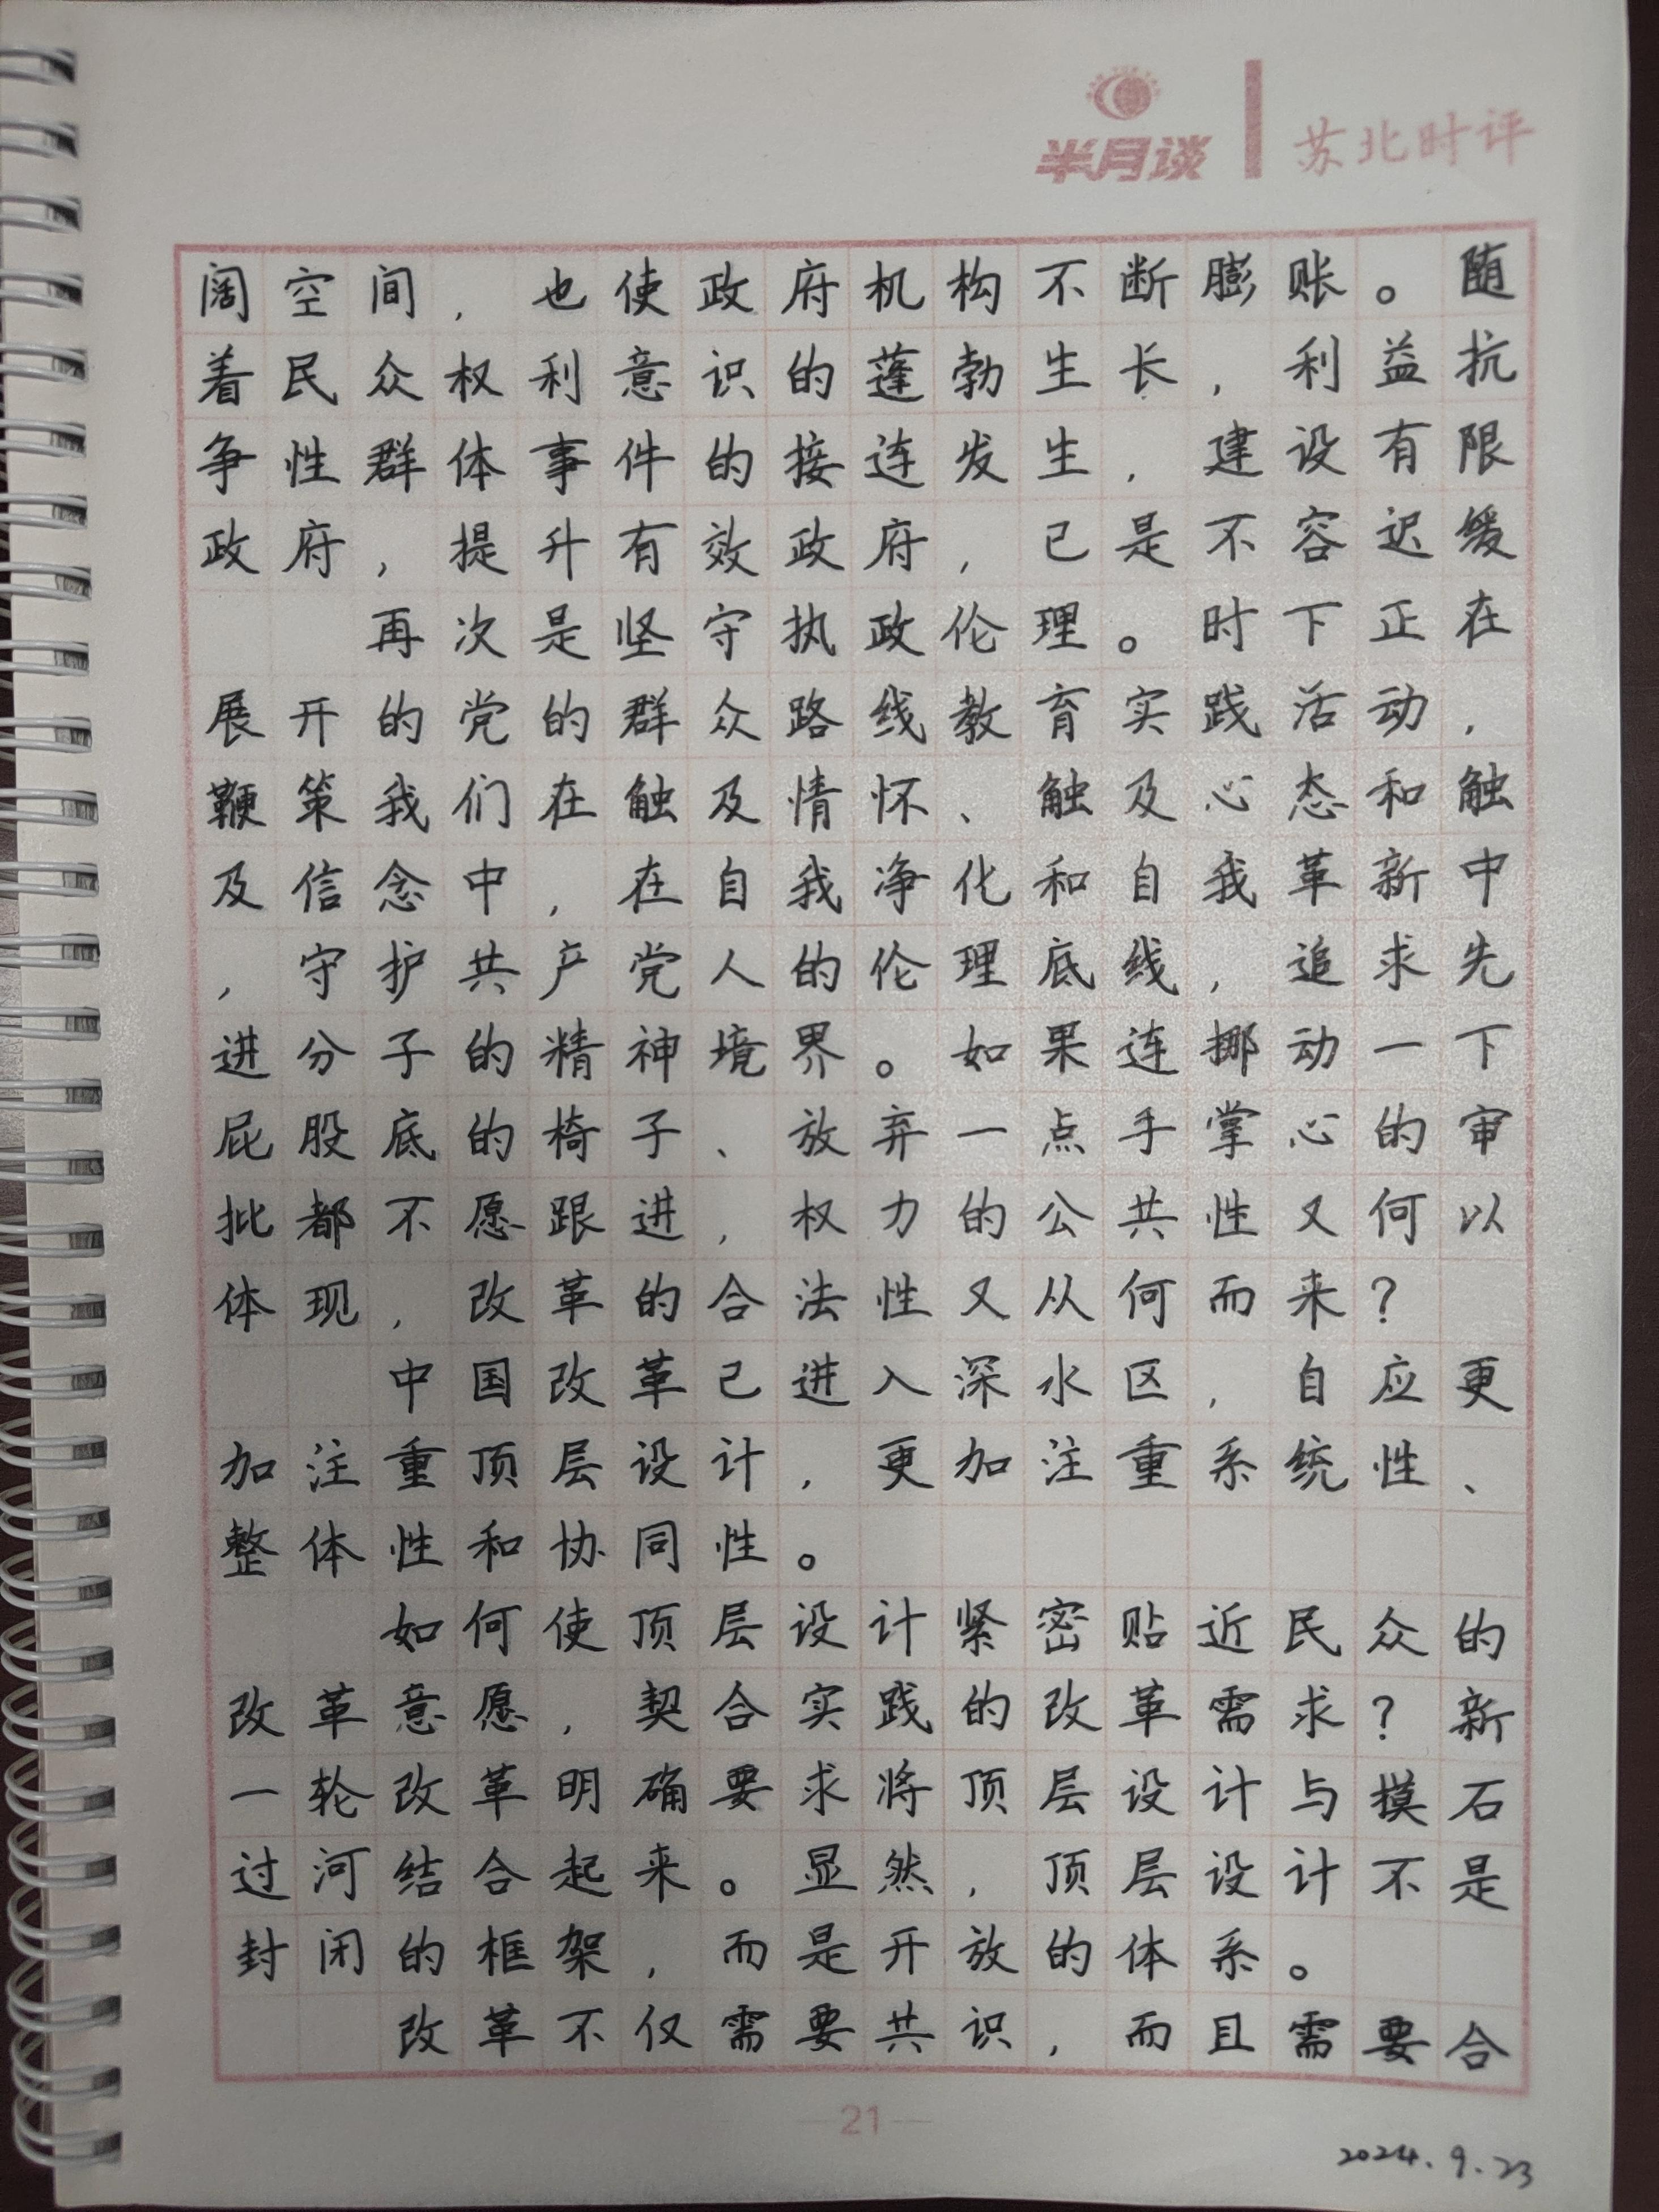 半月谈 苏北时评
阔空间，也使政府机构不断膨账。随
着民众权利意识的蓬勃生长，利益抗
争性群体事件的接连发生，建设有限
政府，提升有效政府，已是不容迟缓
再次是坚守执政伦理。时下正在
展开的党的群众路线教育实践活动，
鞭策我们在触及情怀、触及心态和触
及信念中，在自我净化和自我革新中
，守护共产党人的伦理底线，追求先
进分子的精神境界。如果连挪动一下
屁股底的椅子、放弃一点手掌心的审
批都不愿跟进，权力的公共性又何以
体现，改革的合法性又从何而来？
中国改革已进入深水区，自应更
加注重顶层设计，更加注重系统性、
整体性和协同性。
如何使顶层设计紧密贴近民众的
改革意愿，契合实践的改革需求？新
一轮改革明确要求将顶层设计与摸石
过河结合起来。显然，顶层设计不是
封闭的框架，而是开放的体系。
改革不仅需要共识，而且需要合
21
2024.9.23